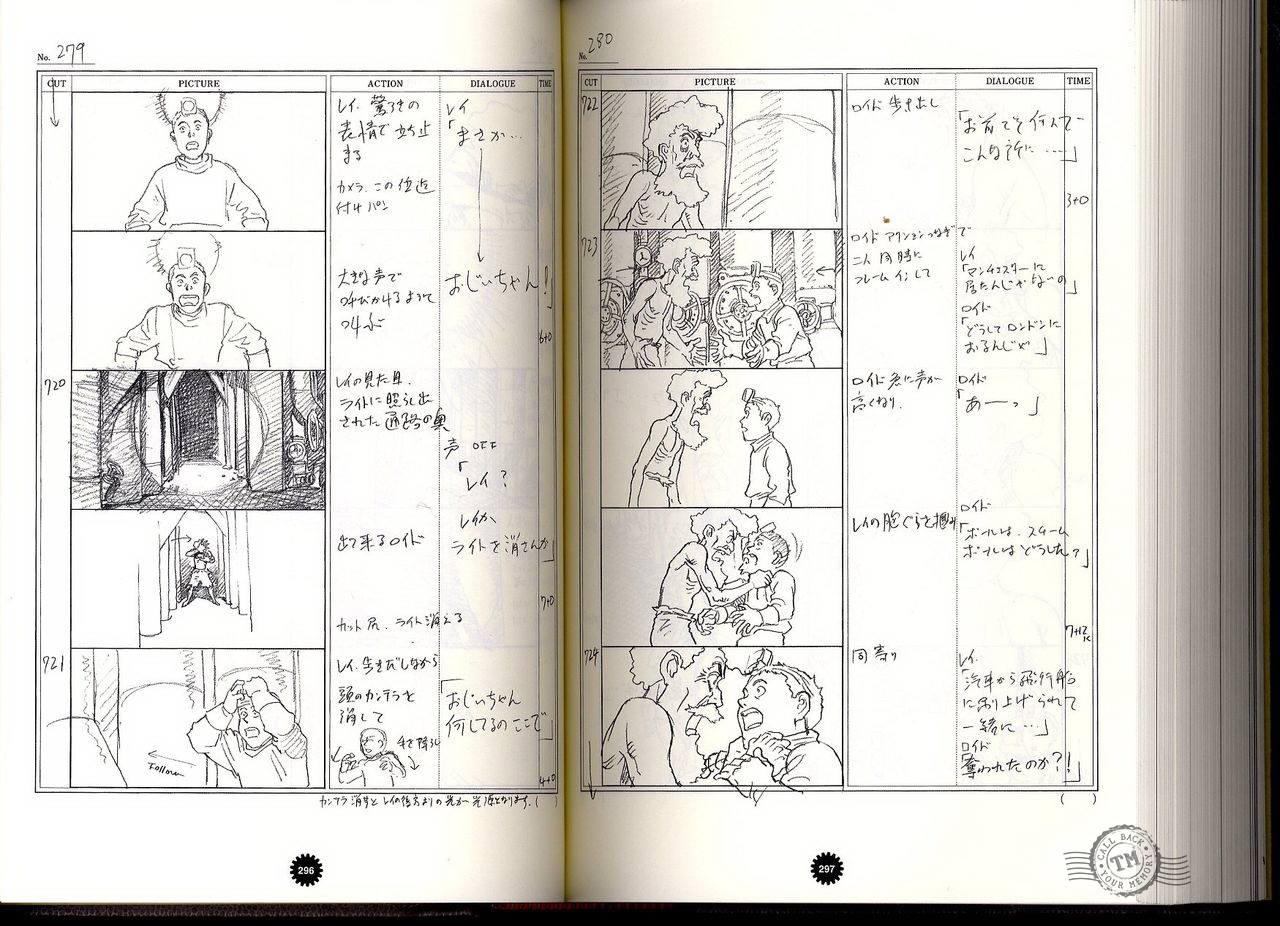 No. 279
CUT PICTURE ACTION DIALOGUE TIME
レイ、驚きの
表情で立ち止
まる
カメラ、この位近
付け パン
レイ
「まさか…
大きな声で
呼びかけるように
叫ぶ
おじいちゃん!」
6+0
720
レイの見た目。
ライトに照らし出
された通路の奥
声 OFF
「レイ?
レイか、
ライトを消さんか」
出て来るロイド
7+0
カット尻、ライト消える
721
レイ、歩きだしながら
頭のカンテラを
消して
手を降ろし
「おじいちゃん
何してるの ここで」
Follow
4+0
カンテラ消すと レイの後方よりの光が 光源となります。( )
296
No. 280
CUT PICTURE ACTION DIALOGUE TIME
722
ロイド 歩き出し
「お前こそ何んで
こんな所に……」
3+0
723
ロイド アクションつなぎで
二人 同時に
フレームインして
レイ
「マンチェスターに
居たんじゃないの」
ロイド
「どうしてロンドンに
おるんじゃ」
ロイド 急に声が
高くなり、
ロイド
「あーっ」
レイの胸ぐらを掴み
ロイド
「ボールは、スチーム
ボールはどうした?」
7+12
724
同 寄り
レイ、
「汽車から飛行船
に吊り上げられて
一緒に…」
ロイド
「奪われたのか?!」
( )
297
CALL BACK
TM
YOUR MEMORY